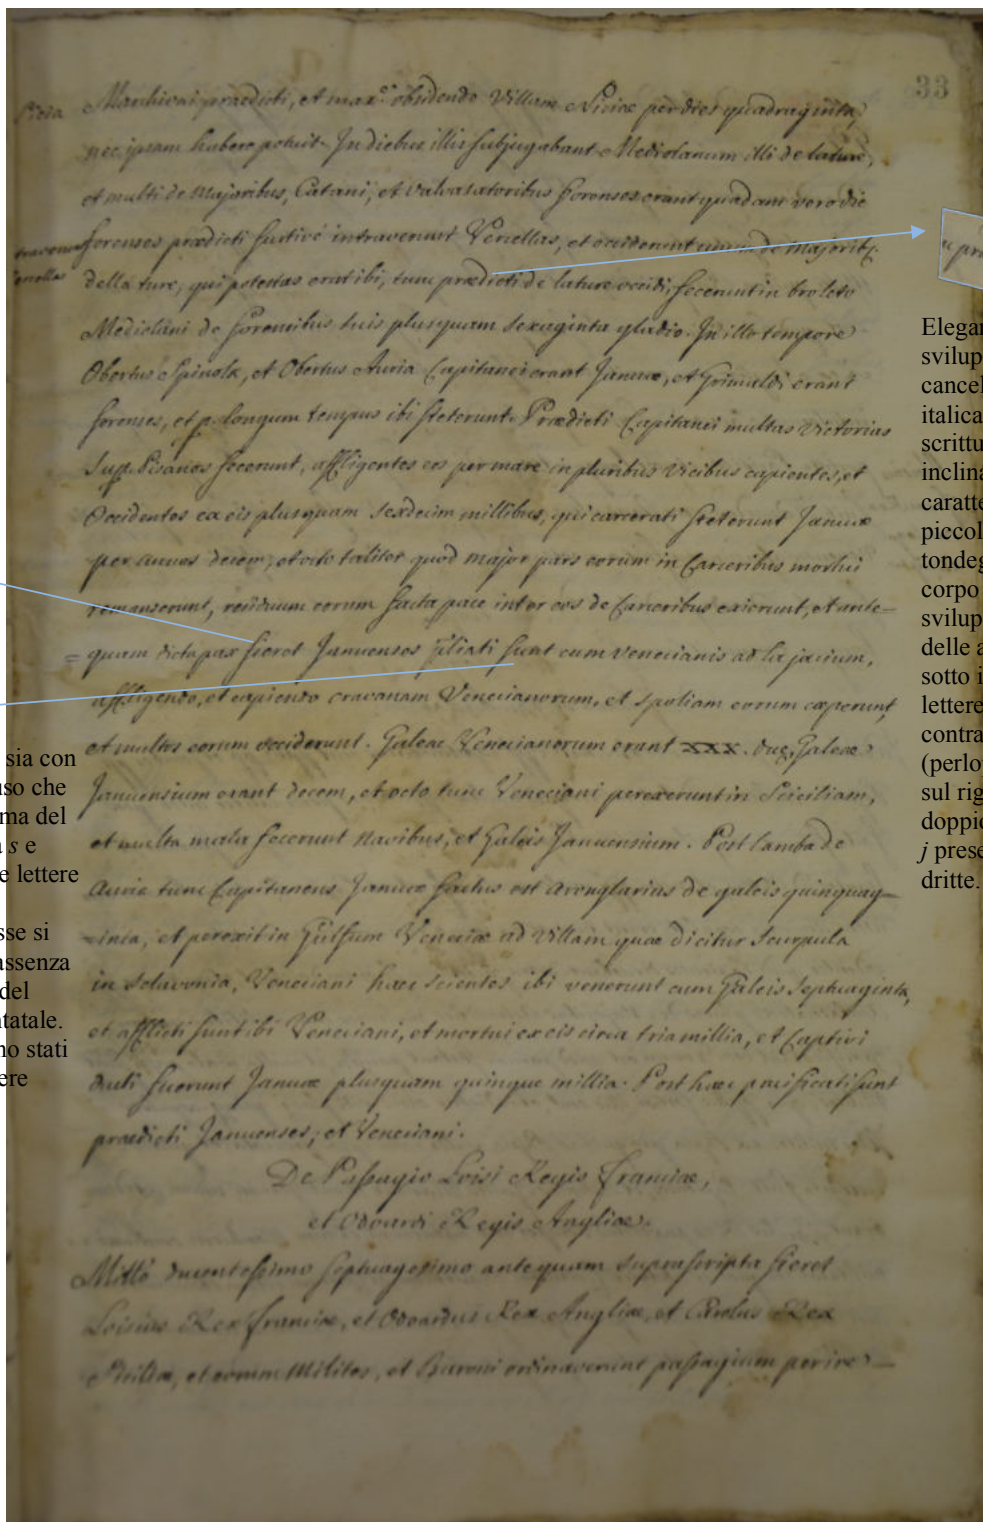 33
Marchioni praedicti, et max.e obsidendo Villam Niciae per dies quadraginta,
nec ipsam habere potuit. In diebus illis subjugabant Mediolanum illi de lature,
et multi de Majoribus, Catani, et Valvasatoribus forenses erant quadam vero die
forenses praedicti furtivé intraverunt Vercellas, et occiderunt unum de majorib.
della ture, qui potestas erat ibi, tunc praedicti de lature occidi fecerunt in broleto
Mediolani de forencibus suis plusquam sexaginta gladio. In illo tempore
Obertus Spinola, et Obertus Auria Capitanei erant Januae, et Grimaldi erant
forenses, et p. longum tempus ibi steterunt. Praedicti Capitanei multas Victorias
Sup. Pisanos fecerunt, affligentes eos per mare in pluribus vicibus capientes, et
Occidentes ex eis plusquam sexdecim millibus, qui carcerati steterunt Januae
per annos decem, et octo taliter quod major pars eorum in Carceribus mortui
remanserunt, residuum eorum facta pace inter eos de Carceribus exierunt, et ante=
=quam dicta pax fieret Januenses filiati sunt cum venecianis ad la jacium,
affligendo, et capiendo cravanam Venecianorum, et spoliam eorum caeperunt,
et multos eorum occiderunt. Galeae Venecianorum erant xxx. due, Galeae
Januensium erant decem, et octo tunc Veneciani perexerunt in Siciliam,
et multa mala fecerunt navibus, et Galeis Januensium. Post Lamba de
Auria tunc Capitaneus Januae factus est de galeis quinquag=
=inta, et perexit in Gulfum Veneciae ad Villam quae dicitur Scurpula
in Sclavonia, Veneciani haec scientes ibi venerunt cum Galeis Septuaginta,
et afflicti sunt ibi Veneciani, et mortui ex eis circa tria millia, et Captivi
ducti fuerunt Januae plusquam quinque millia. Post haec pacificati sunt
praedicti Januenses, et Veneciani.
De Passagio Loisi Regis Franciae,
et Odoardi Regis Angliae.
Millo ducentessimo septuagesimo antequam suprascripta fieret
Loisius Rex Franciae, et Odoardus Rex Angliae, et Carolus Rex
et eorum Milites, et Baroni ordinaverunt passagium per ire
sia con
uso che
ma del
s e
e lettere
sse si
assenza
del
tatale.
no stati
ere
u pra
Elegan
svilup
cancel
italica
scrittu
inclina
caratte
piccol
tondeg
corpo
svilup
delle a
sotto i
lettere
contra
(perlo
sul rig
doppio
j prese
dritte.